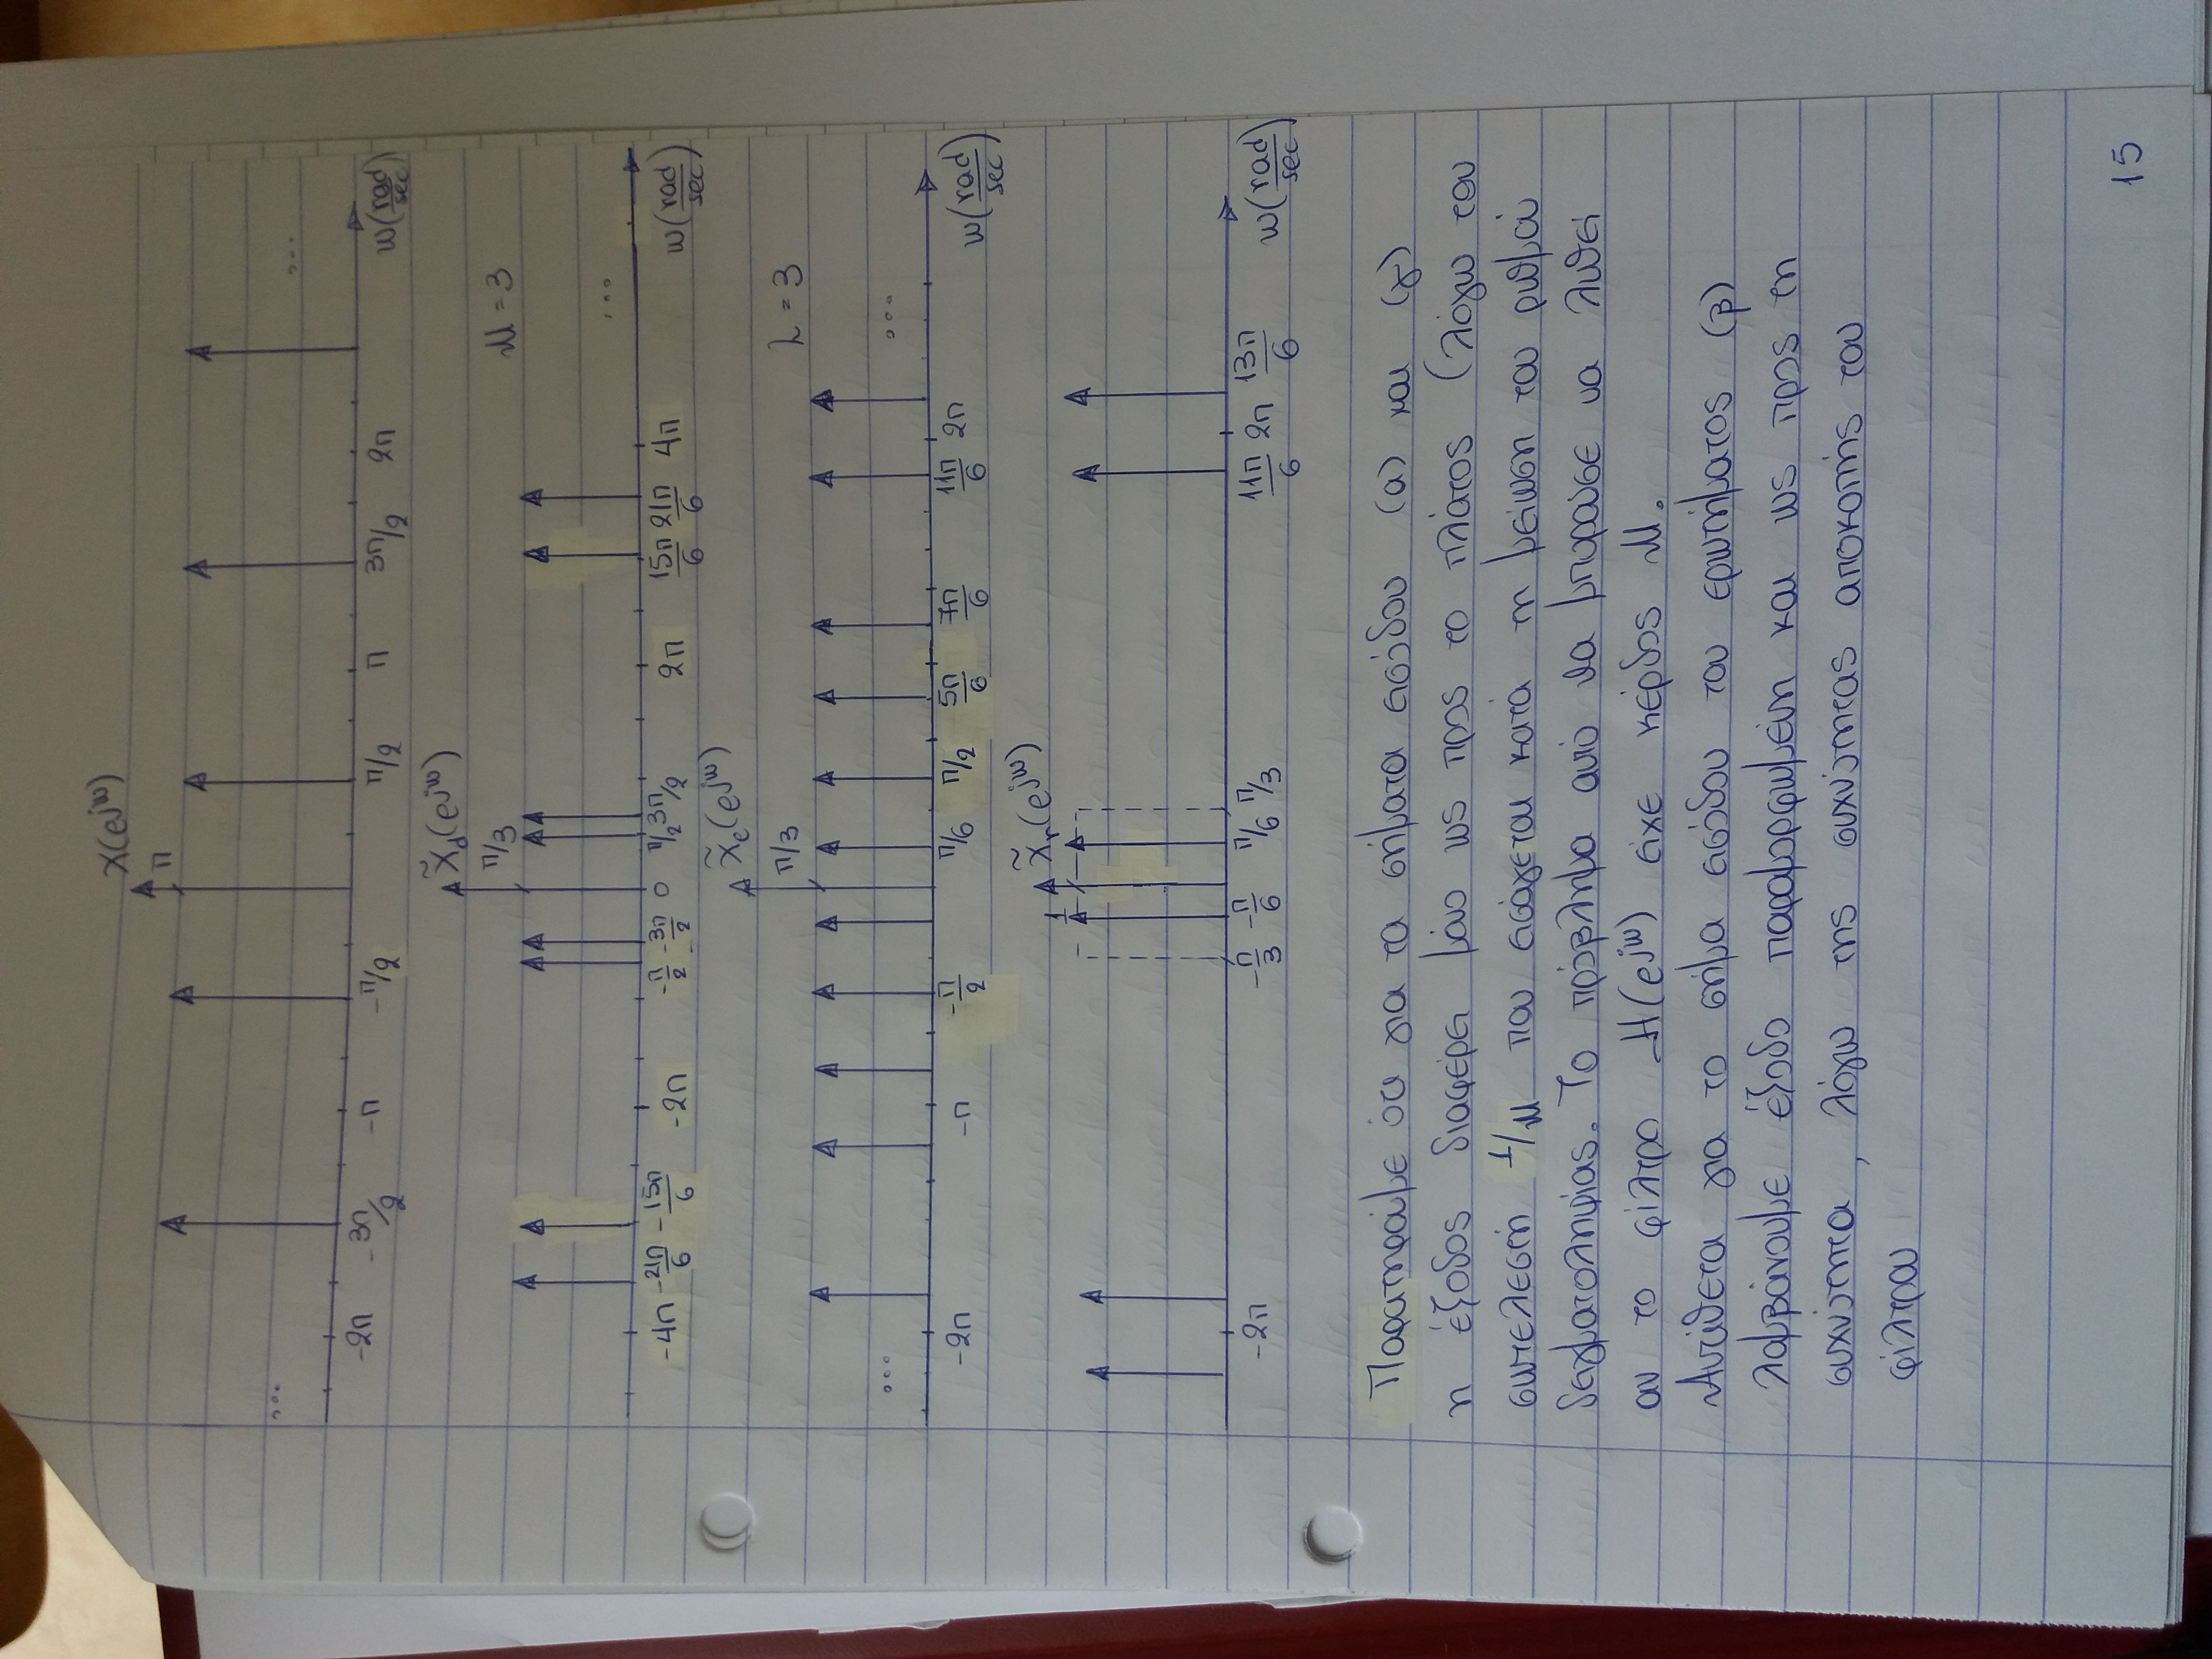 X(e^jω)
π
...
...
-2π -3π/2 -π -π/2 π/2 π 3π/2 2π ω(rad/sec)
X̃d(e^jω)
π/3
M = 3
...
-4π -21π/6 -15π/6 -2π -π/2 -3π/2 0 π/2 3π/2 2π 15π/6 21π/6 4π ω(rad/sec)
X̃e(e^jω)
π/3
L = 3
...
...
-2π -π -π/2 π/6 π/2 5π/6 7π/6 11π/6 2π ω(rad/sec)
X̃r(e^jω)
1
-2π -π/3 -π/6 π/6 π/3 11π/6 2π 13π/6 ω(rad/sec)
Παρατηρούμε ότι για τα σήματα εισόδου (α) και (γ)
η έξοδος διαφέρει μόνο ως προς το πλάτος (λόγω του
συντελεστή 1/M που εισάγεται κατά τη μείωση του ρυθμού
δειγματοληψίας. Το πρόβλημα αυτό θα μπορούσε να λυθεί
αν το φίλτρο H(e^jω) είχε κέρδος M.
Αντίθετα για το σήμα εισόδου του ερωτήματος (β)
λαμβάνουμε έξοδο παραμορφωμένη και ως προς τη
συχνότητα, λόγω της συχνότητας αποκοπής του
φίλτρου
15